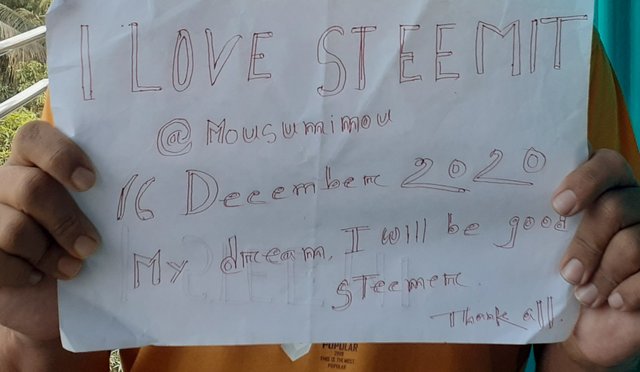 I LOVE STEEMIT
@Mousumimou
16 December 2020
My dream, I will be good
steemer.
Thank all.
POPULAR
THIS IS THE MOST
POPULAR